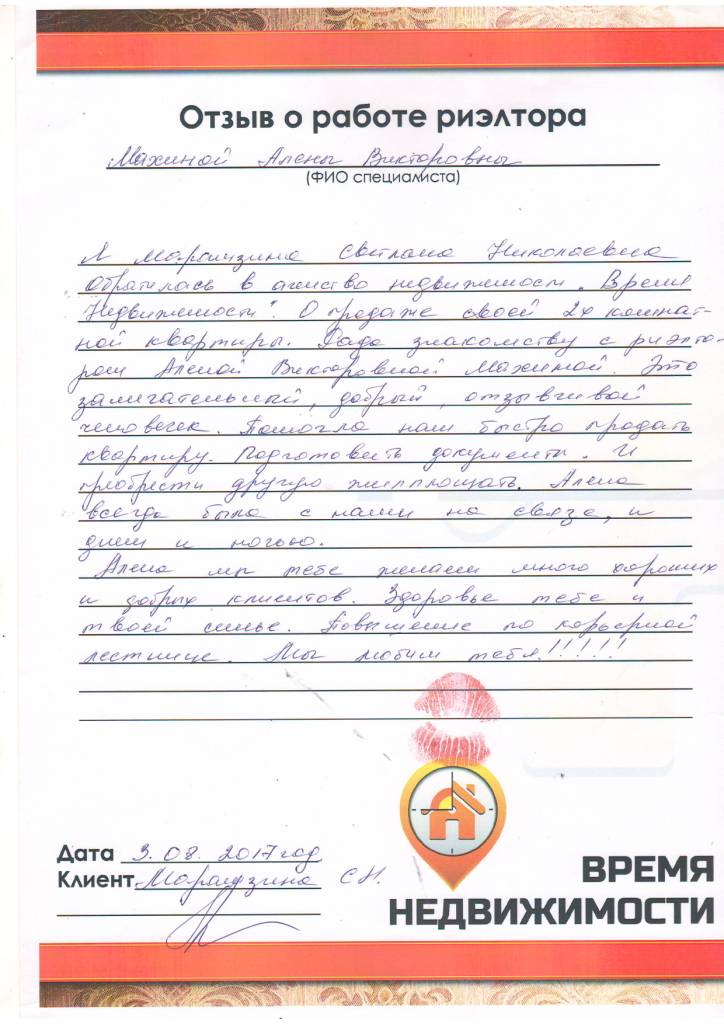 Отзыв о работе риэлтора
Махиной Алены Викторовны
(ФИО специалиста)
Я Светлана Николаевна
Обратилась в агенство недвижемости "Время
Недвижемости". О продаже своей 2х комнат-
ной квартиры. Рада знакомству с риэлто-
ром Аленой Викторовной Махиной. Это
замечательный, добрый, отзывчивой
человечек. Помогла нам быстро продать
квартиру. Подготовить документы. И
преобрести другую жилплощать. Алена
всегда была с нами на связе, и
днем и ночью.
Алена мы тебе желаем много хороших
и добрых клиентов. Здоровье тебе и
твоей семье. Повышение по карьерной
лестнице. Мы любим тебя!!!!!!
Дата 3.08.2017 год
Клиент С Н.
ВРЕМЯ
НЕДВИЖИМОСТИ